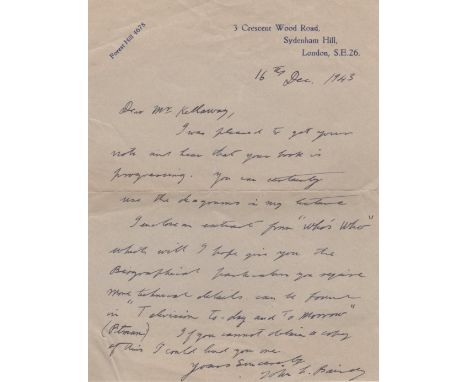 Forest Hill 4078
3 Crescent Wood Road,
Sydenham Hill,
London, S.E.26.
16th Dec. 1943
Dear Mr Kellaway,
I was pleased to get your
note and hear that your book is
progressing. You can certainly
use the diagrams in my lecture
I enclose an extract from "Who's Who"
which will I hope give you the
Biographical particulars you require
more technical details can be found
in "Television To-day and To Morrow"
(Pitman) If you cannot obtain a copy
of this I could lend you one
Yours Sincerely
John L. Baird